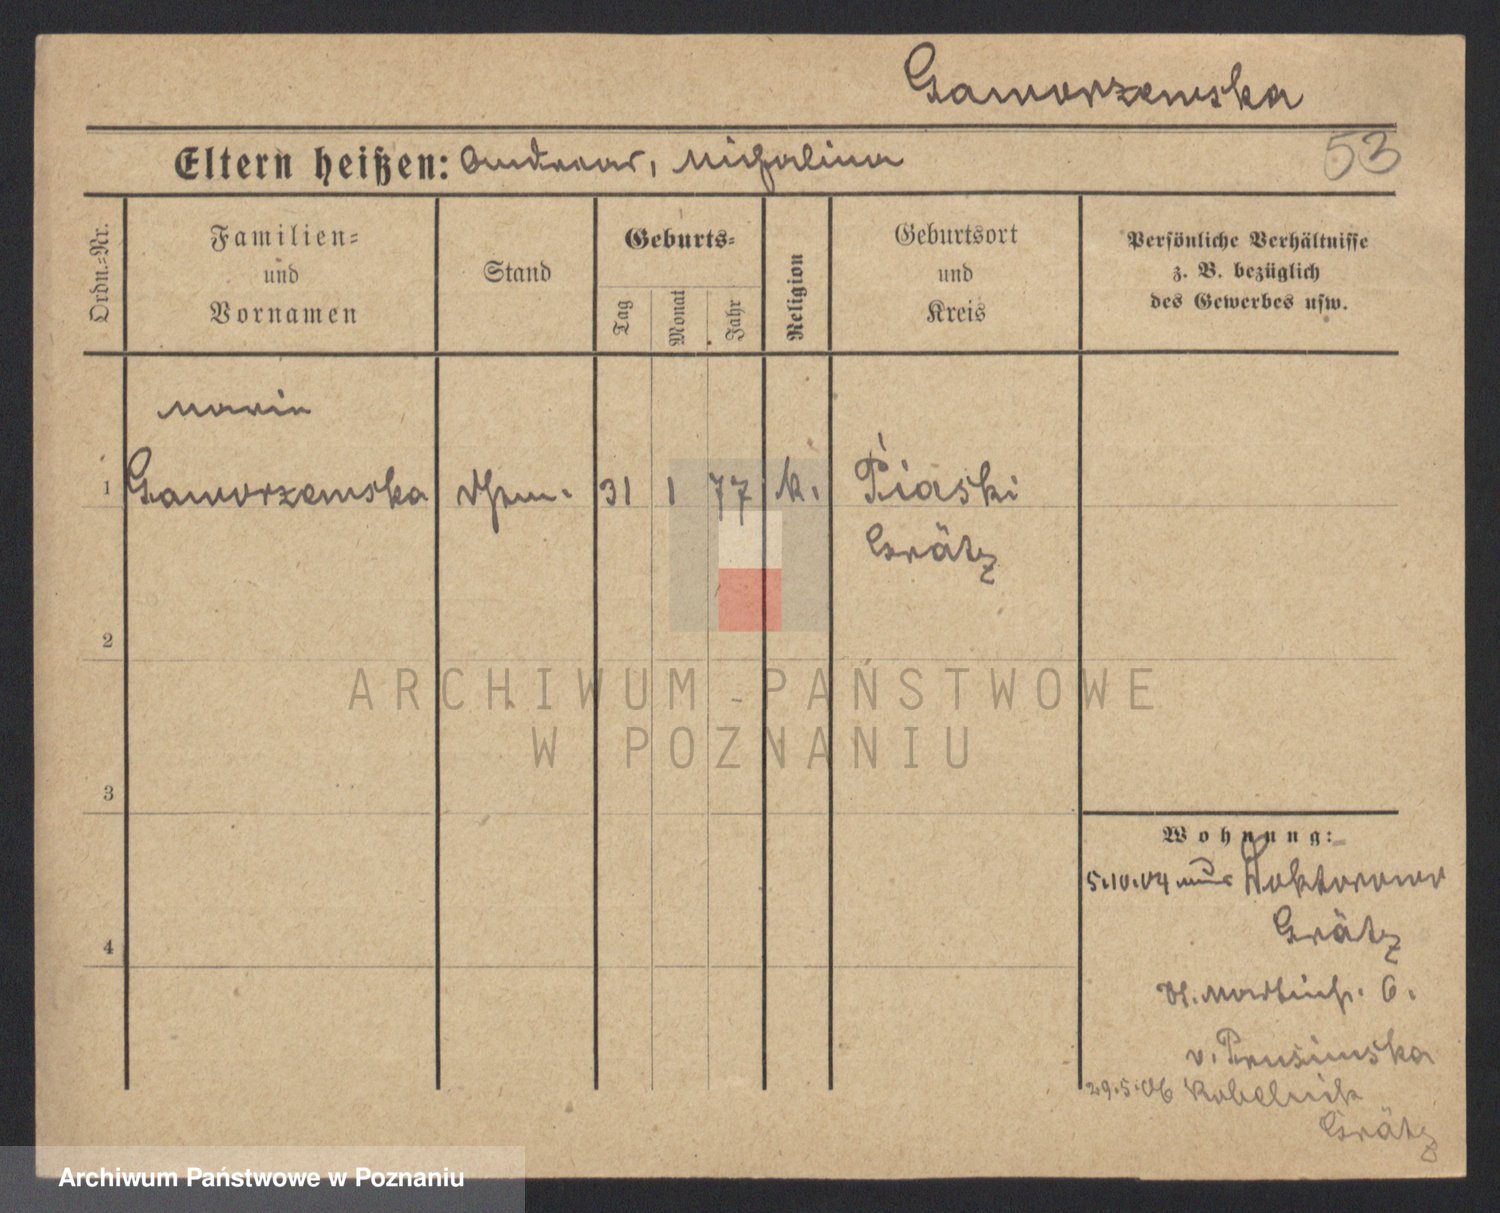 Gaworzewska
53
Eltern heißen: Andreas, Michalina
Ordn.=Nr.
Familien=
und
Vornamen
Stand
Geburts=
Tag
Monat
Jahr
Religion
Geburtsort
und
Kreis
Persönliche Verhältnisse
z. B. bezüglich
des Gewerbes usw.
Maria
1 Gaworzewska 31 1 77 k. Piaski
Grätz
2
3
4
Wohnung:
5.10.04 aus Doktorowo
Grätz
St. Martinstr. 6.
v. Prusimska
29.5.06 Kobelnik
Grätz
ARCHIWUM PAŃSTWOWE
W POZNANIU
Archiwum Państwowe w Poznaniu